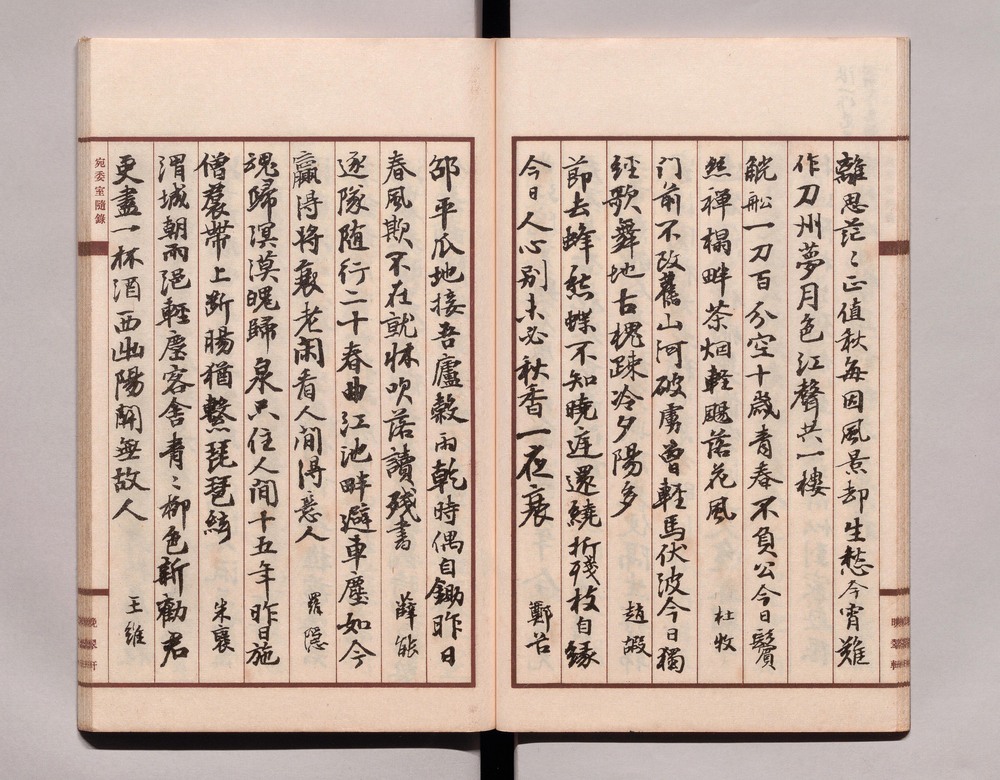 離思茫〻正值秋每因風景却生愁今宵難
作刀州夢月色江聲共一樓
觥船一刀百分空十歲青春不負公今日鬢
絲禪榻畔茶烟輕颺落花風 杜牧
门前不改舊山河破虜曾輕馬伏波今日獨
經歌舞地古槐踈冷夕陽多 趙嘏
節去蜂愁蝶不知曉庭還繞折殘枝自緣
今日人心別未必秋香一夜衰 鄭谷
邵平瓜地接吾廬穀雨乾時偶自鋤昨日
春風欺不在就牀吹落讀殘書 薛能
逐隊随行二十春曲江池畔避車塵如今
贏得將衰老闲看人间得意人 羅隱
魂歸溟漠魄歸泉只住人间十五年昨日施
僧裠帶上斷腸猶繫琵琶絃 朱襃
渭城朝雨浥輕塵客舍青〻柳色新勸君
更盡一杯酒西出陽關無故人 王維
宛委室隨錄
晚翠軒